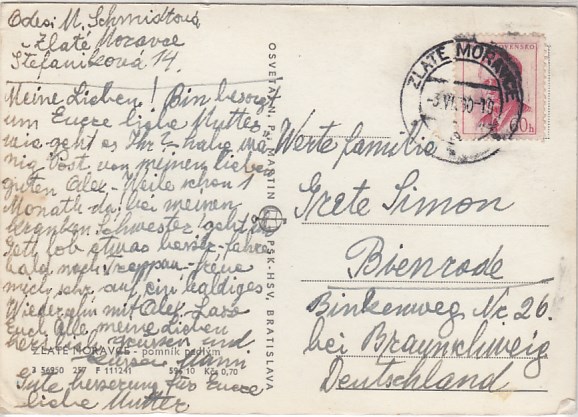 Odos. M. Schmidtová
Zlaté Moravce
Štefanikova 14.
Meine Lieben! Bin besorgt
um Euere liebe Mutter,
wie geht es Ihr? habe
nig Post von meinen lieben
guten Alex - Weile schon 1
Monath da bei meinen
kranken Schwester! geht es
Gott lob etwas besser - fahre
bald nach - freue
mich sehr auf ein baldiges
Wiedersehn mit Alex. Lass
Euch Alle meine lieben
herzlich grüssen und
küssen
gute besserung für Euere
liebe Mutter
ZLATÉ MORAVCE - pomník padlým
3 56950 257 F 111241 59 10 Kčs 0,70
OSVETA, N. P., MARTIN
PSK-HSV, BRATISLAVA
ZLATÉ MORAVCE
-3.VI.60-19
60h
Werte familia
Grete Simon
Bienrode
Binkenweg Nr 26.
bei Braunschweig
Deutschland